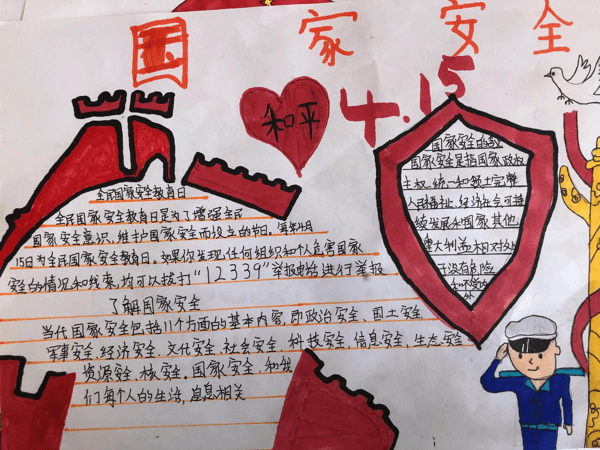 国家安全
4.15
和平
全民国家安全教育日
全民国家安全教育日是为了增强全民
国家安全意识,维护国家安全而设立的节日。每年4月
15日为全民国家安全教育日。如果你发现任何组织和个人危害国家
安全的情况和线索,均可以拨打"12339"举报电话进行举报
了解国家安全
当代国家安全包括11个方面的基本内容,即政治安全、国土安全
军事安全、经济安全、文化安全、社会安全、科技安全、信息安全、生态安全
资源安全、核安全。国家安全,和我
们每个人的生活,息息相关
国家安全的
国家安全是指国家政权
主权、统一和领土完整
人民福祉、经济社会可持
续发展和国家其他
重大利益相对处
于没有危险
和不受内
外